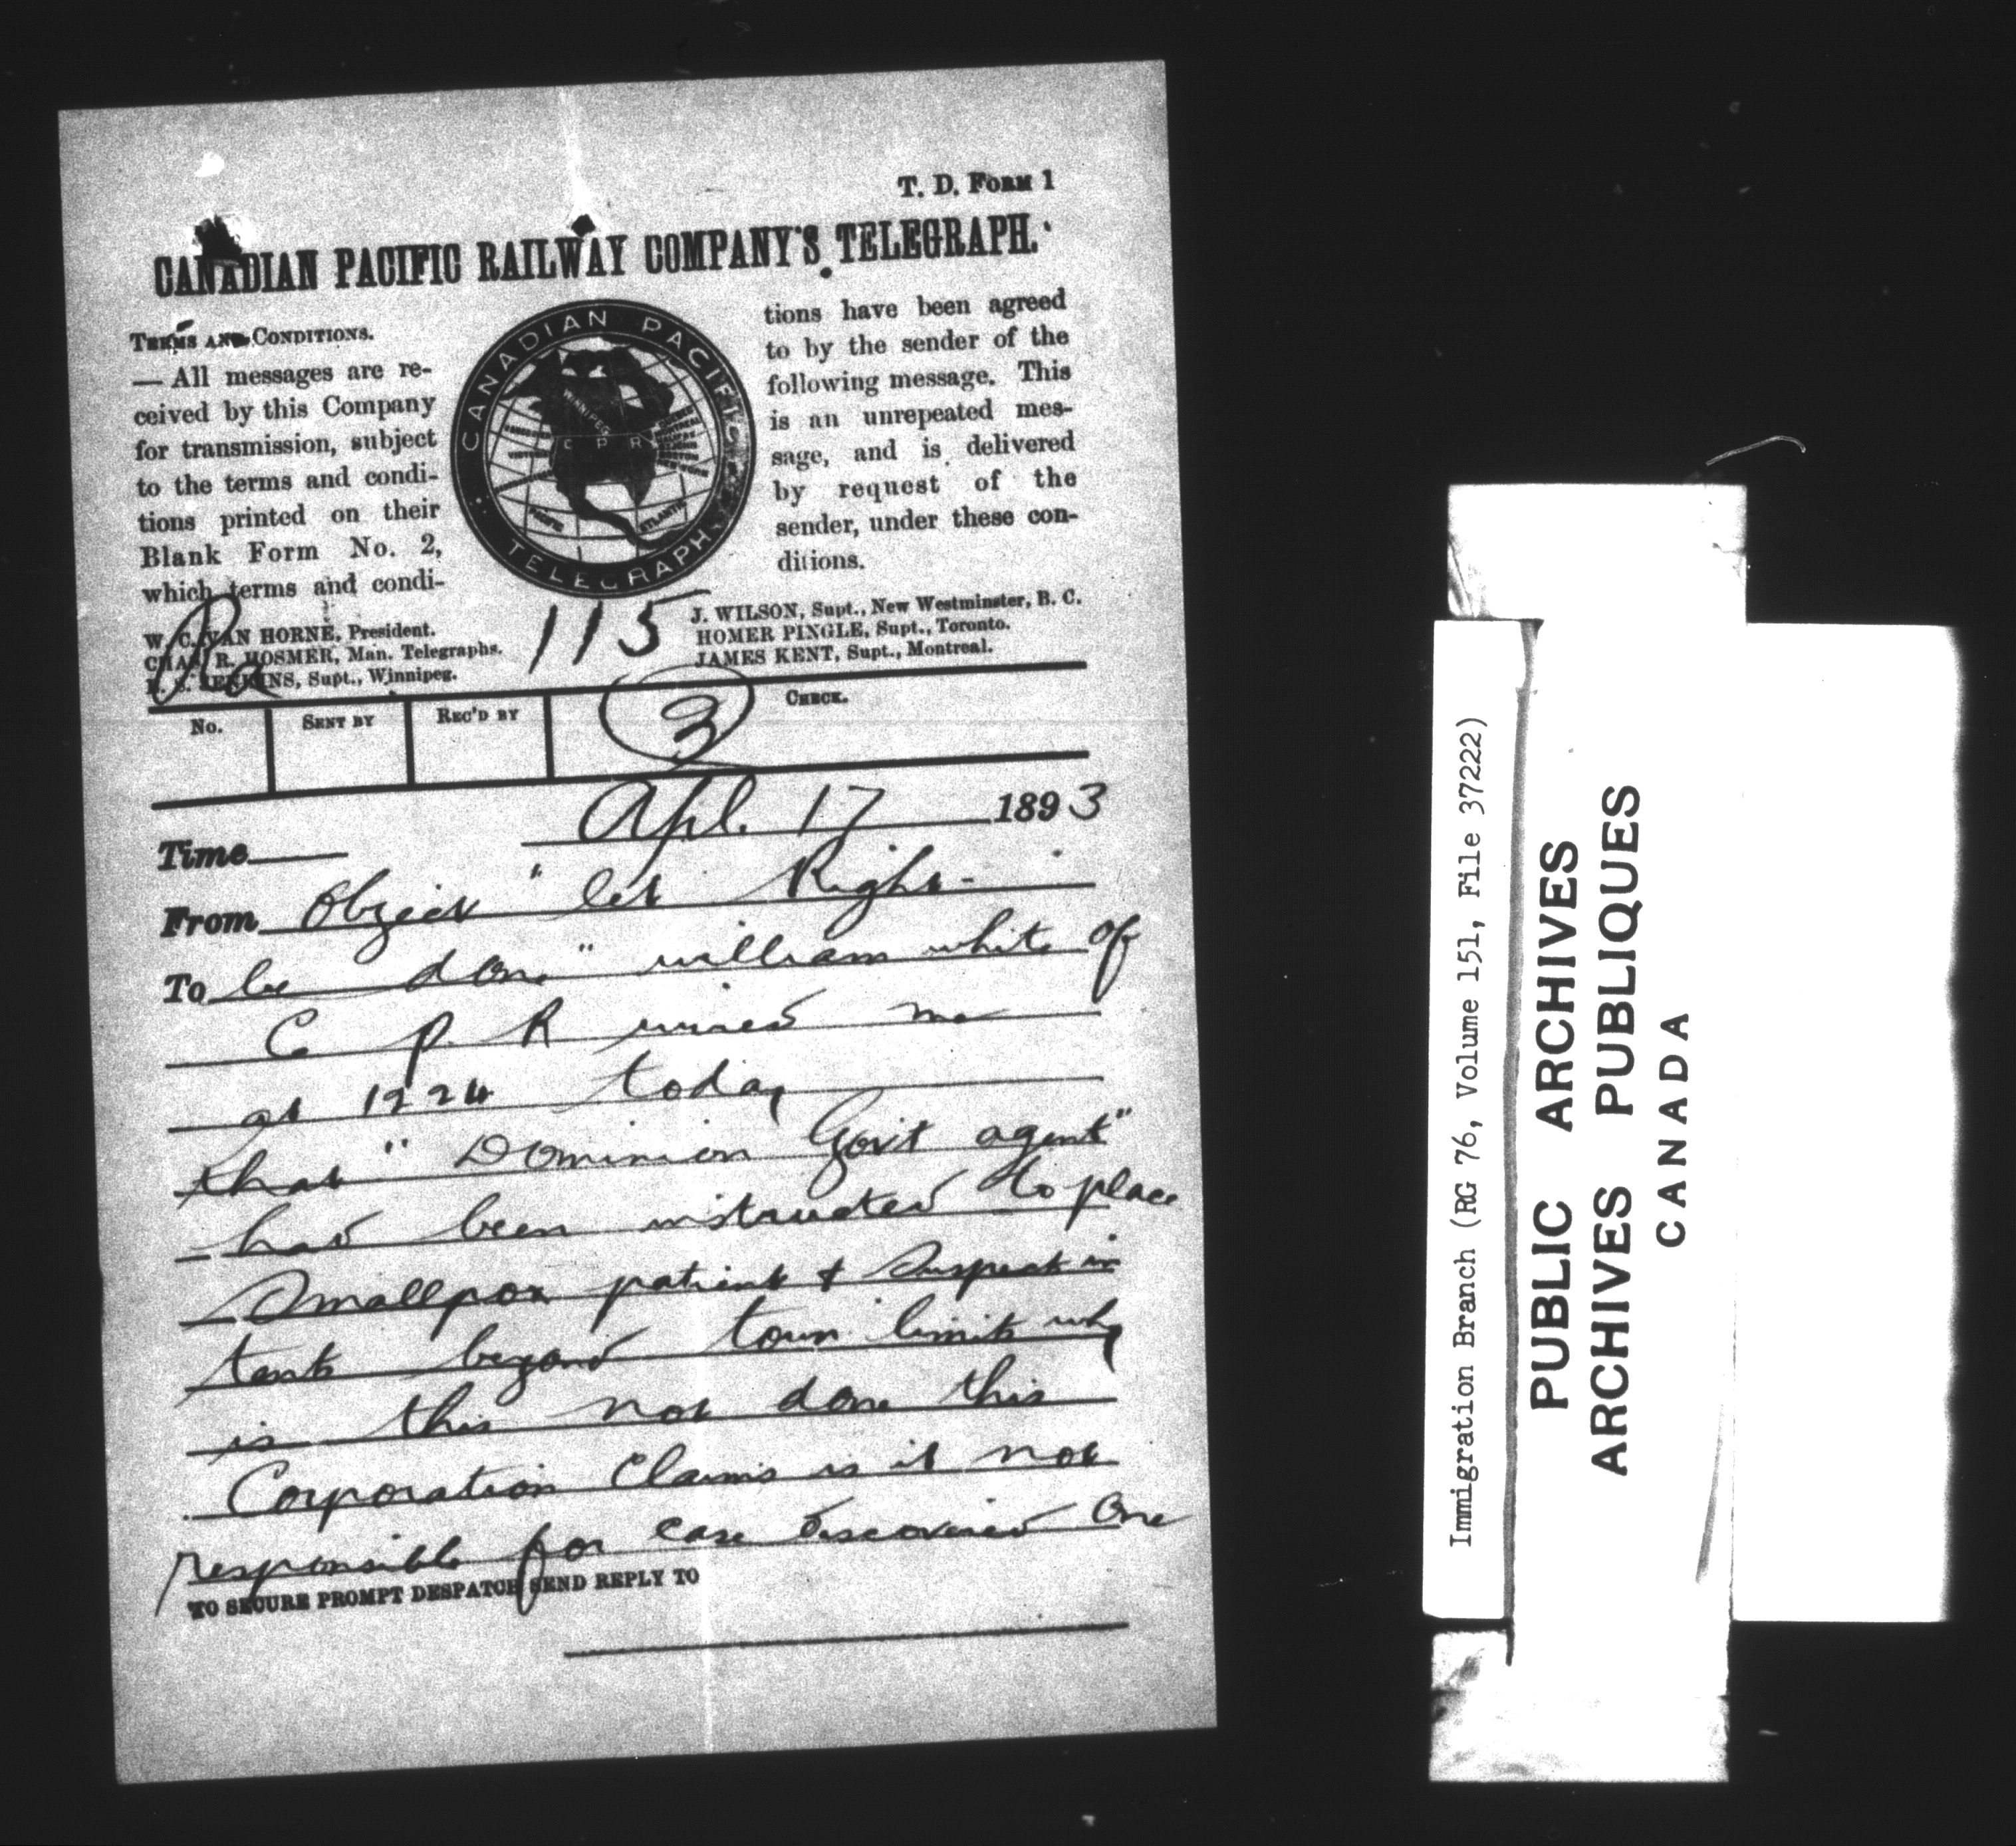 T. D. FORM 1
CANADIAN PACIFIC RAILWAY COMPANY'S TELEGRAPH.
TERMS AND CONDITIONS.
— All messages are re-
ceived by this Company
for transmission, subject
to the terms and condi-
tions printed on their
Blank Form No. 2,
which terms and condi-
tions have been agreed
to by the sender of the
following message. This
is an unrepeated mes-
sage, and is delivered
by request of the
sender, under these con-
ditions.
CANADIAN PACIFIC
TELEGRAPH
WINNIPEG
C P R
PACIFIC
ATLANTIC
W. C. VAN HORNE, President.
CHAS. R. HOSMER, Man. Telegraphs.
JENKINS, Supt., Winnipeg.
115
J. WILSON, Supt., New Westminster, B. C.
HOMER PINGLE, Supt., Toronto.
JAMES KENT, Supt., Montreal.
No. SENT BY REC'D BY CHECK.
3
Apl. 17 1893
Time
From Object " let Right
To be done " william white of
C P R wired me
at 1224 today
that " Dominion Govt agent "
had been instructed to place
Smallpox patient & Suspect in
tents beyond town limits why
is this not done this
Corporation Claims is it not
responsible for case discovered One
TO SECURE PROMPT DESPATCH SEND REPLY TO
Immigration Branch (RG 76, Volume 151, File 37222)
PUBLIC ARCHIVES
ARCHIVES PUBLIQUES
CANADA